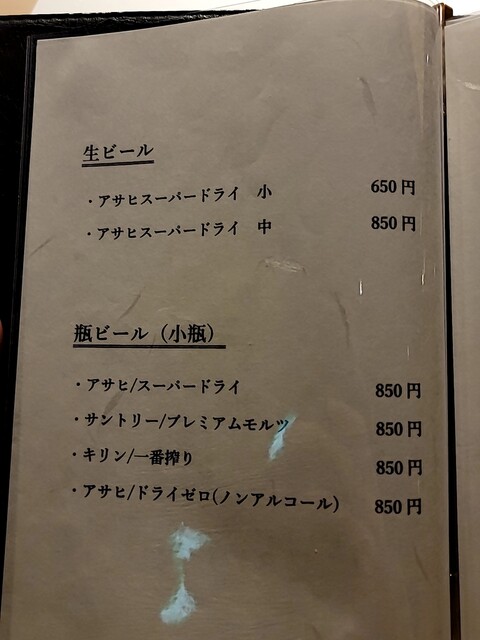 生ビール
・アサヒスーパードライ 小 650円
・アサヒスーパードライ 中 850円
瓶ビール（小瓶）
・アサヒ/スーパードライ 850円
・サントリー/プレミアムモルツ 850円
・キリン/一番搾り 850円
・アサヒ/ドライゼロ(ノンアルコール) 850円